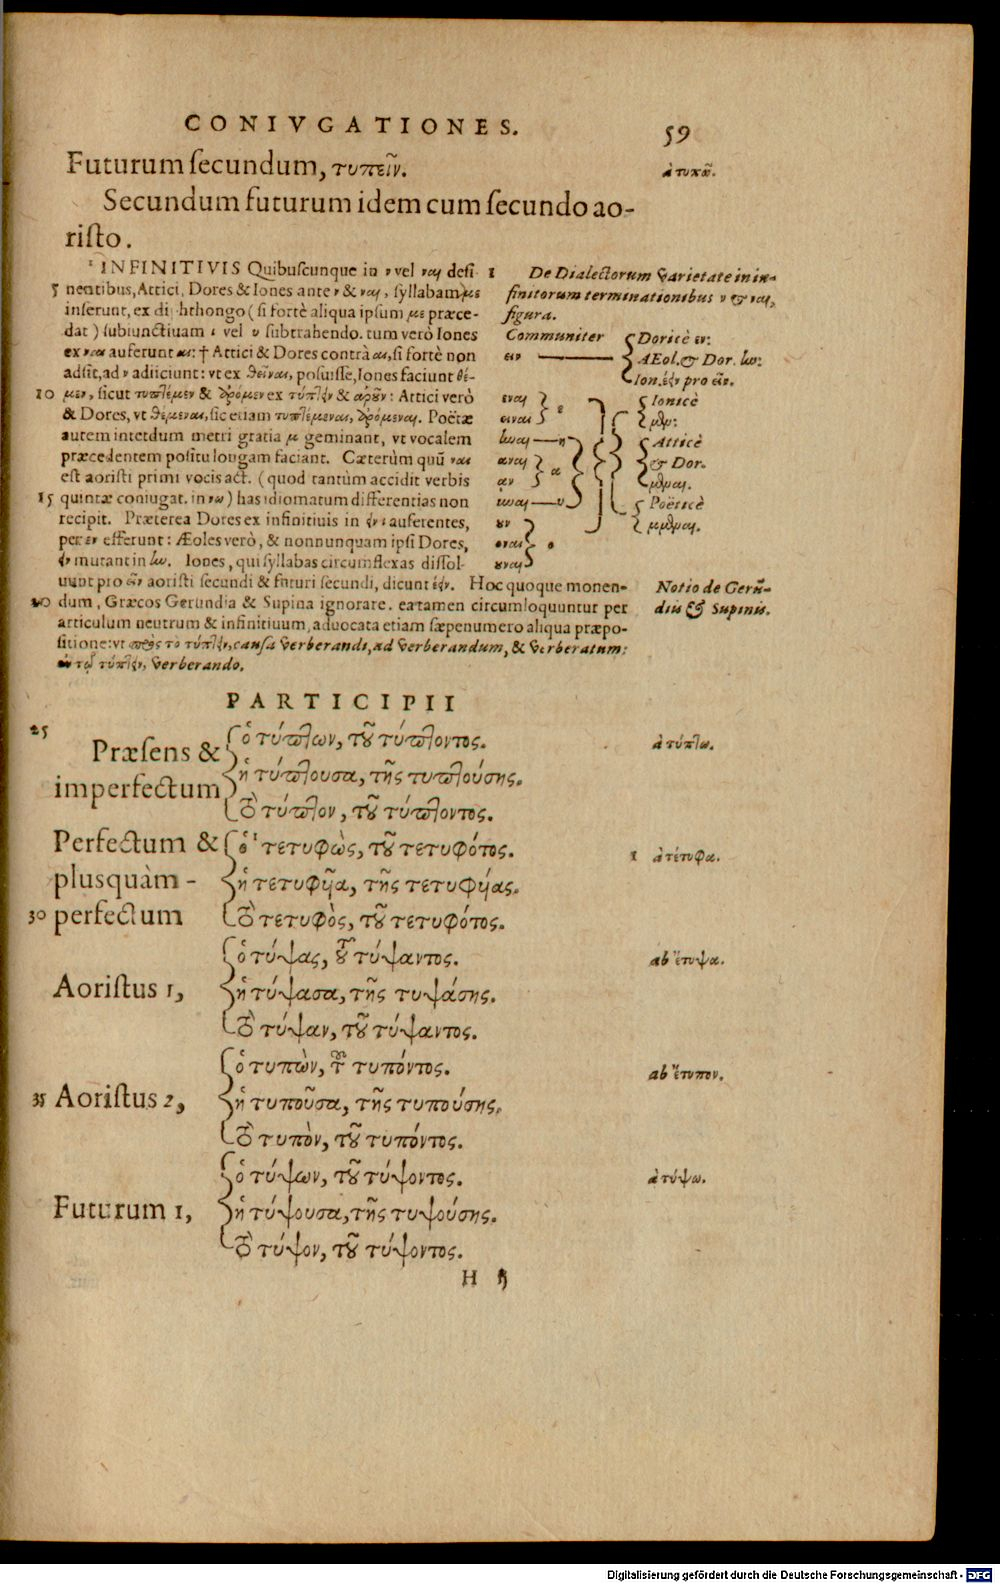 CONIVGATIONES.
59
Futurum secundum, τυπεῖν.
ἀ τυπῶ.
Secundum futurum idem cum secundo ao-
risto.
1 INFINITIVIS Quibuscunque in ν vel ναι desi
5 nentibus, Attici, Dores & Iones ante ν & ναι, syllabam με
inserunt, ex diphthongo (si fortè aliqua ipsum με præce-
dat) subiunctiuam ι vel υ subtrahendo. tum verò Iones
ex ναι auferunt αι: † Attici & Dores contrà αι, si fortè non
adsit, ad ν adiiciunt: vt ex θεῖναι, posuisse, Iones faciunt θέ-
10 μεν, sicut τυπτέμεν & δρόμεν ex τύπτειν & : Attici verò
& Dores, vt θέμεναι, sic etiam τυπτέμεναι, δρόμεναι. Poëtæ
autem interdum metri gratia μ geminant, vt vocalem
præcedentem positu longam faciant. Cæterùm quũ ναι
est aoristi primi vocis act. (quod tantùm accidit verbis
15 quintæ coniugat. in νω) has idiomatum differentias non
recipit. Præterea Dores ex infinitiuis in ειν ι auferentes,
per εν efferunt: Æoles verò, & nonnunquam ipsi Dores,
ειν mutant in ην. Iones, qui syllabas circumflexas dissol-
uunt pro εῖν aoristi secundi & futuri secundi, dicunt έειν. Hoc quoque monen-
20 dum, Græcos Gerundia & Supina ignorare. ea tamen circumloquuntur per
articulum neutrum & infinitiuum, aduocata etiam sæpenumero aliqua præpo-
sitione: vt πρὸς τὸ τύπτειν, causa verberandi, ad verberandum, & verberatum:
ἐν τῷ τύπτειν, verberando.
1 De Dialectorum varietate in in-
finitorum terminationibus ν & ναι,
figura.
Communiter
Doricè εν:
ειν
Æol. & Dor. ην:
Ion. έειν pro εῖν.
εναι
ε
Ionicè
ειναι
μεν:
ηναι
η
Atticè
αναι
α
& Dor.
αν
μεναι.
υναι
υ
Poëticè
ουν
μμεναι.
οναι
ο
ουναι
Notio de Gerũ-
diis & Supinis.
PARTICIPII
25
Præsens &
imperfectum
ὁ τύπτων, τοῦ τύπτοντος.
ἡ τύπτουσα, τῆς τυπτούσης.
τὸ τύπτον, τοῦ τύπτοντος.
ἀ τύπτω.
Perfectum &
plusquàm-
30 perfectum
ὁ 1 τετυφὼς, τοῦ τετυφότος.
ἡ τετυφῦια, τῆς τετυφύιας.
τὸ τετυφὸς, τοῦ τετυφότος.
1 ἀ τέτυφα.
Aoristus 1,
ὁ τύψας, τοῦ τύψαντος.
ἡ τύψασα, τῆς τυψάσης.
τὸ τύψαν, τοῦ τύψαντος.
ab ἔτυψα.
35 Aoristus 2,
ὁ τυπὼν, τοῦ τυπόντος.
ἡ τυποῦσα, τῆς τυπούσης,
τὸ τυπὸν, τοῦ τυπόντος.
ab ἔτυπον,
Futurum 1,
ὁ τύψων, τοῦ τύψοντος.
ἡ τύψουσα, τῆς τυψούσης.
τὸ τύψον, τοῦ τύψοντος.
ἀ τύψω.
H ij
Digitalisierung gefördert durch die Deutsche Forschungsgemeinschaft - DFG